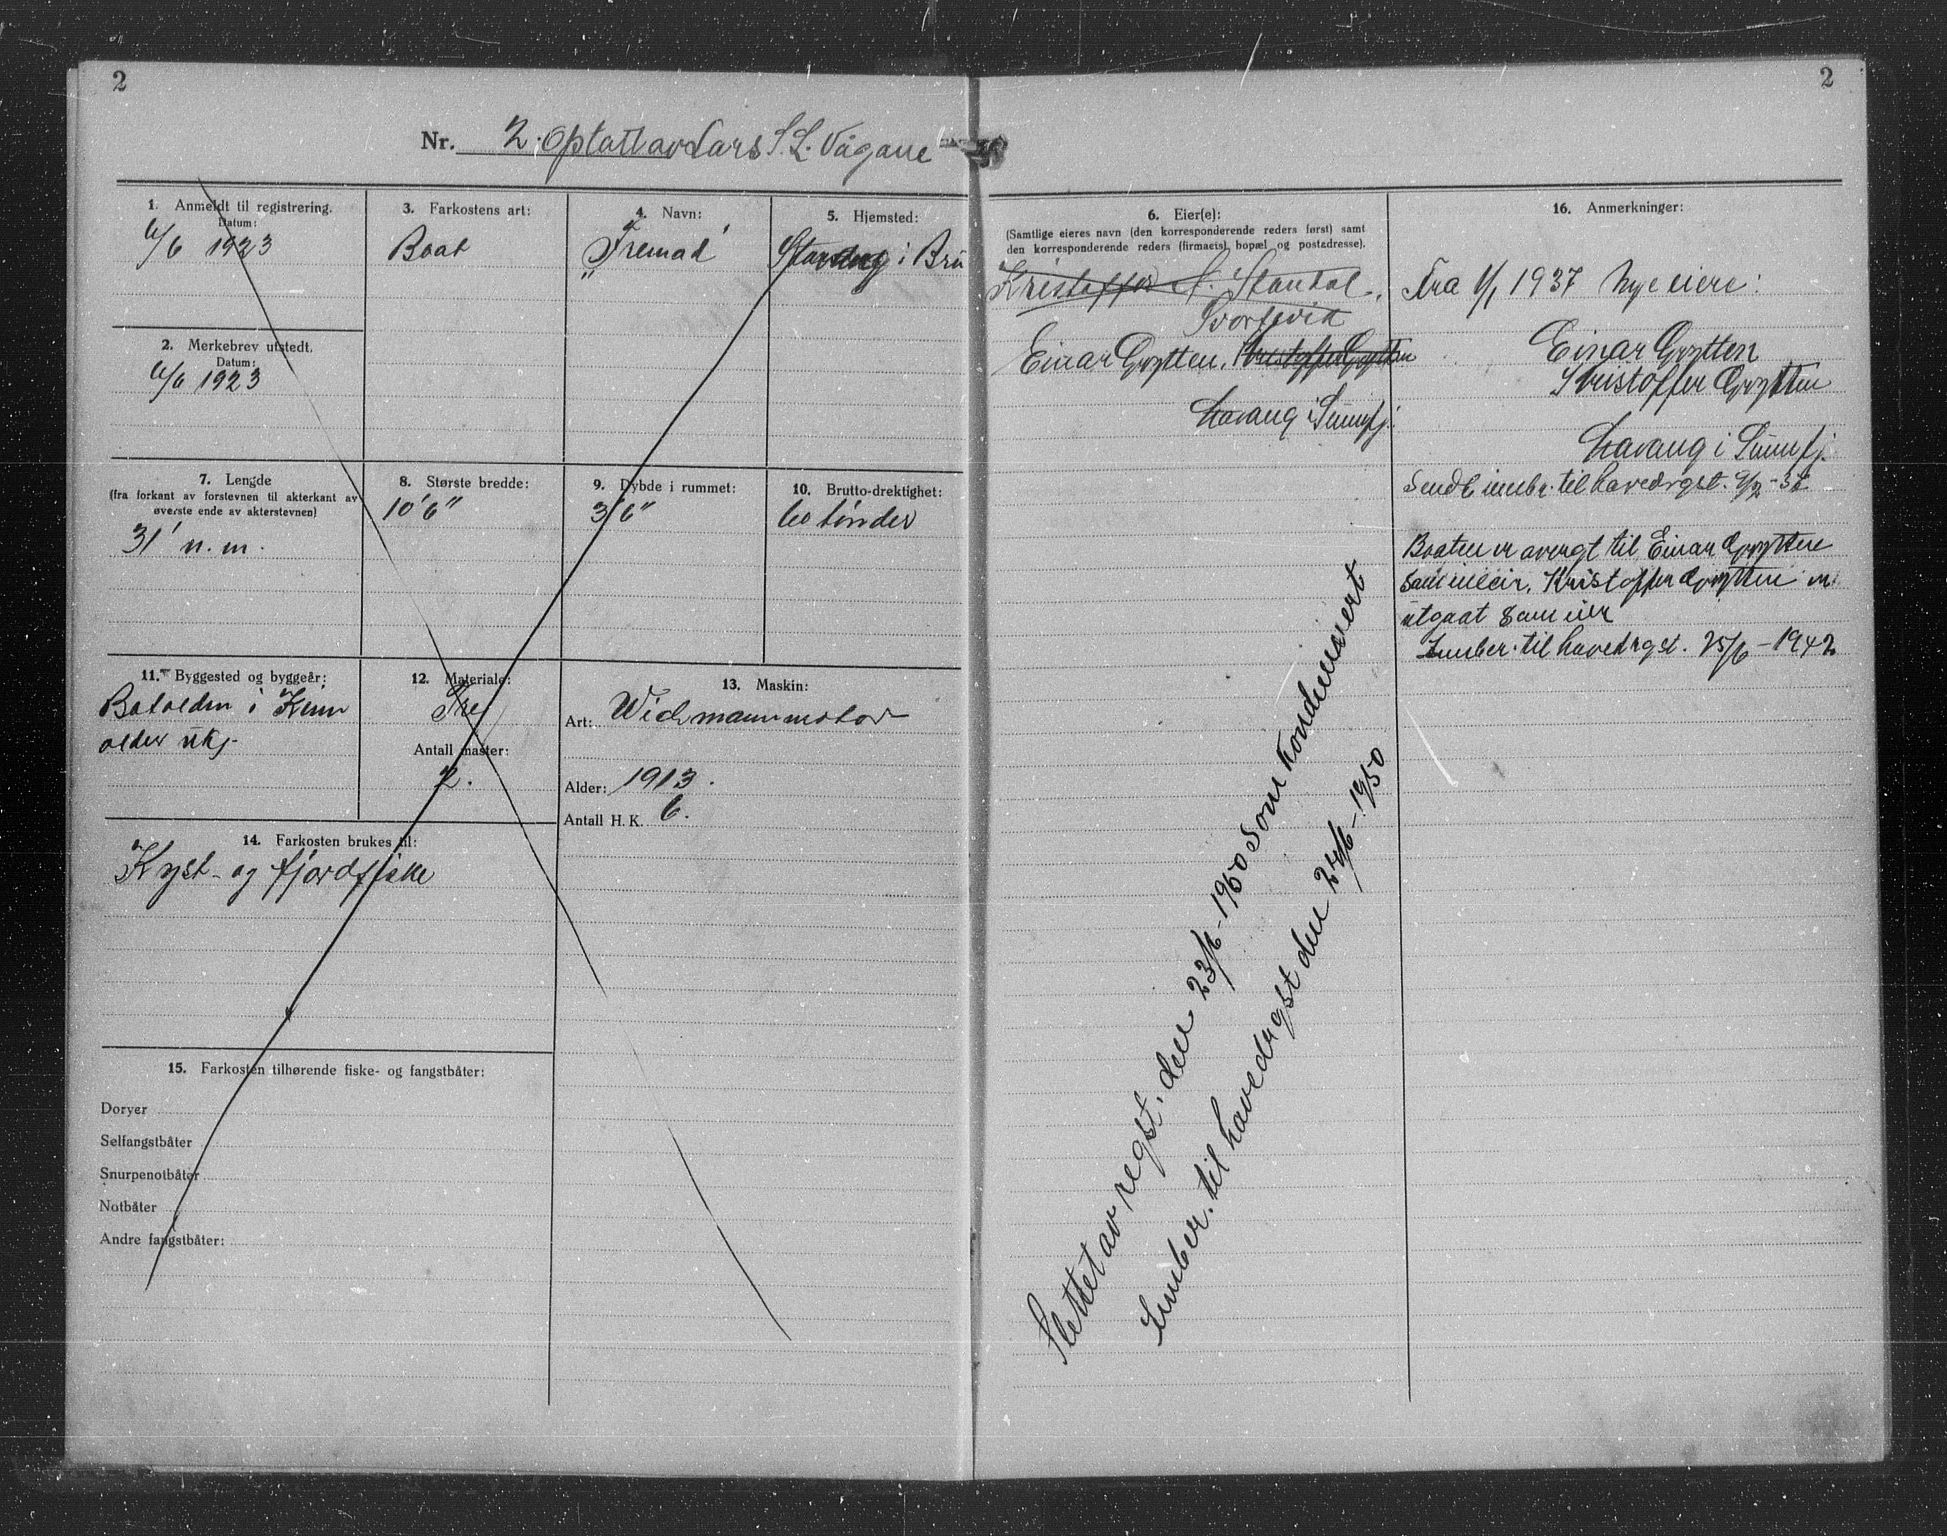 2
2
Nr. 2. optatt av Lars S. L. Vågane
1. Anmeldt til registrering.
Datum:
6/6 1923
2. Merkebrev utstedt.
Datum:
6/6 1923
3. Farkostens art:
Baat
4. Navn:
"Fremad"
5. Hjemsted:
i Bru
6. Eier(e):
(Samtlige eieres navn (den korresponderende reders først) samt
den korresponderende reders (firmaets) bopæl og postadresse).
Kristoffer A. Standal
Svortevik
Einar Grytten, Kristoffer Grytten
Havang i Sunnfj.
7. Lengde
(fra forkant av forstevnen til akterkant av
øverste ende av akterstevnen)
31' n. m.
8. Største bredde:
10' 6"
9. Dybde i rummet:
3' 6"
10. Brutto-drektighet:
60 tönder
11. Byggested og byggeår:
Batalden i Kinn
alder ukj.
12. Materiale:
Tre
Antall master:
2.
13. Maskin:
Art: Wichmannmotor
Alder: 1913.
Antall H. K. 6.
14. Farkosten brukes til:
Kyst- og fjordfiske
15. Farkosten tilhørende fiske- og fangstbåter:
Doryer
Selfangstbåter
Snurpenotbåter
Notbåter
Andre fangstbåter:
16. Anmerkninger:
Fra 1/1 1937 Nye eiere:
Einar Grytten
Kristoffer Grytten
Havang i Sunnfj.
Sendt innber. til hovedrgst.
Baaten er overgt til Einar Grytten
som eneeir, Kristoffer Grytten er
utgaat som eier
Innber. til hovedrgst. 25/6 - 1942
Slettet av regst. den 23/6 - 1950 som kondemnert
Innber. til hovedrgst den 24/6 - 1950